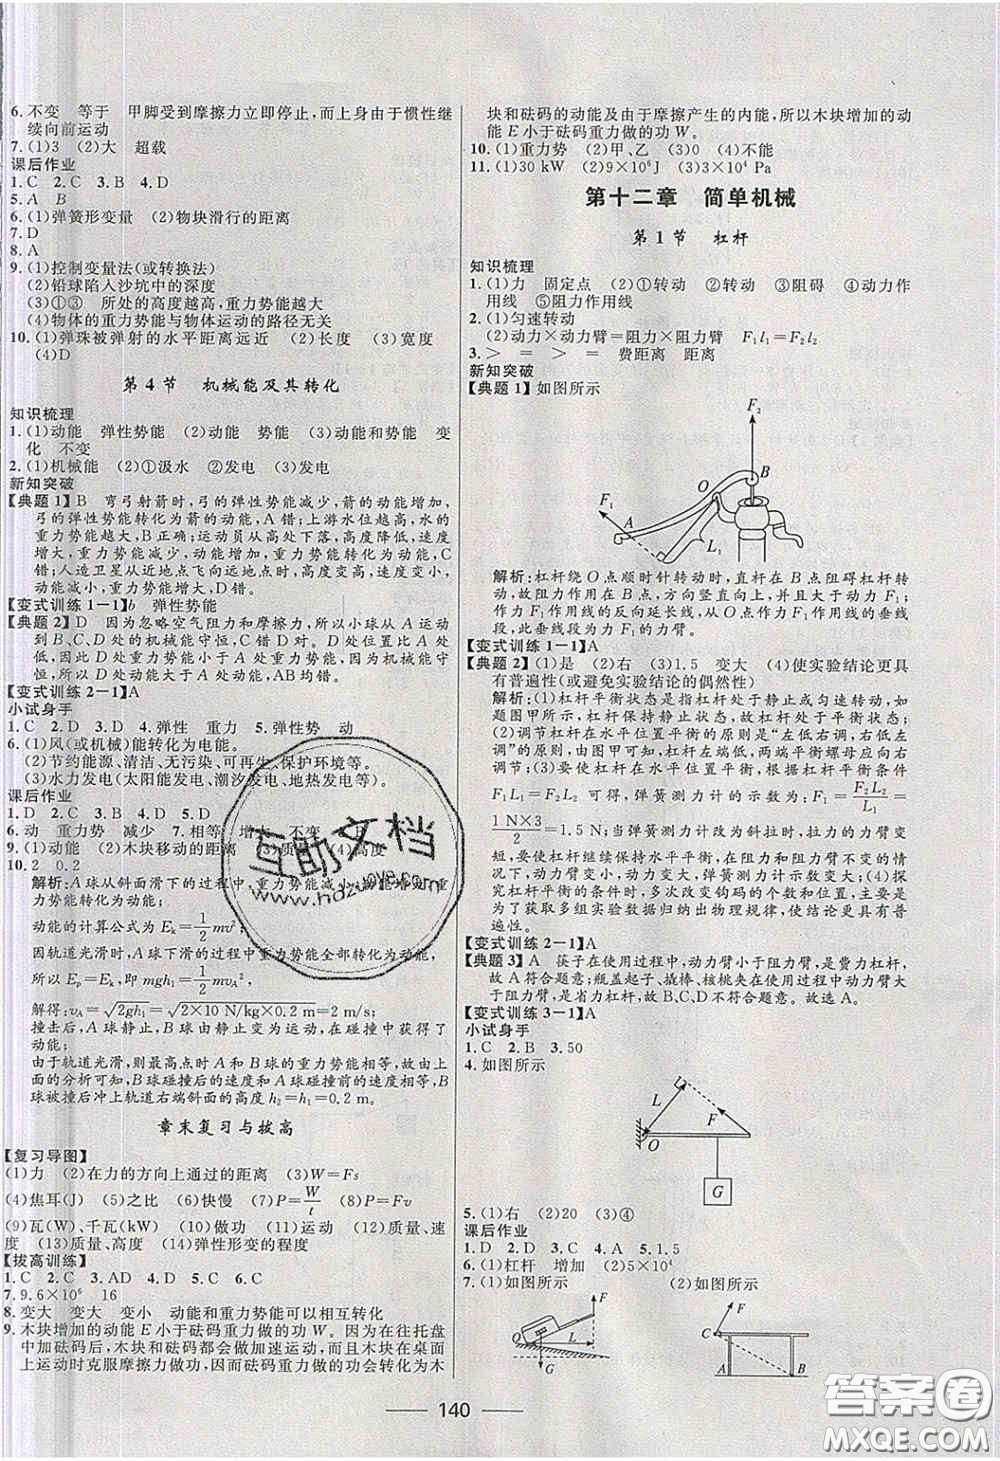 6. 不变　等于　甲脚受到摩擦力立即停止,而上身由于惯性继
续向前运动
7. (1)3　(2)大　超载
课后作业
1. C　2. C　3. B　4. D
5. A　B
6. (1)弹簧形变量　(2)物块滑行的距离
7. D
8. A
9. (1)控制变量法(或转换法)
(2)铅球陷入沙坑中的深度
(3)①③　所处的高度越高,重力势能越大
(4)物体的重力势能与物体运动的路径无关
10. (1)弹珠被弹射的水平距离远近　(2)长度　(3)宽度
(4)D
第 4 节　机械能及其转化
知识梳理
1. (1)动能　弹性势能　(2)动能　势能　(3)动能和势能　变
化　不变
2. (1)机械能　(2)①汲水　②发电　③发电
新知突破
【典题 1】B　弯弓射箭时,弓的弹性势能减少,箭的动能增加,
弓的弹性势能转化为箭的动能,A 错;上游水位越高,水的
重力势能越大,B正确;运动员从高处下落,高度降低,速度
增大,重力势能减少,动能增加,重力势能转化为动能,C
错;人造卫星从近地点飞向远地点时,高度变高,速度变
小,动能减小,重力势能增大,D错。
【变式训练 1－1】b　弹性势能
【典题 2】D　因为忽略空气阻力和摩擦力,所以小球从 A 运
动到 B、C、D 处的机械能守恒,C 错 D 对。D 处位置比 A
处低,因此 D 处重力势能小于 A 处重力势能,由于机械能
守恒,所以 D 处动能大于 A 处动能,AB均错。
【变式训练 2－1】A
小试身手
1. C　2. D　3. D　4. 弹性　重力　5. 弹性势　动
6. (1)风(或机械)能转化为电能。
(2)节约能源、清洁、无污染、可再生、保护环境等。
(3)水力发电(太阳能发电、潮汐发电、地热发电等)。
课后作业
1. D　2. C　3. B　4. D　5. D
6. 动　重力势　减少　7. 相等　增大　不变　8. B
9. (1)动能　(2)木块移动的距离　(3)质量　(4)高度
10. 2　0.2
解析:A 球从斜面滑下的过程中,重力势能减少,动能增加,重
力势能转化为动能;
动能的计算公式为 Ek=1/2 mv²;
因轨道光滑时,A 球下滑的过程中重力势能全部转化为动能,
所以 Ep=Ek,即 mgh1=1/2 mvA²,
解得:vA=√2gh1=√2×10 N/kg×0.2 m=2 m/s;
撞击后,A 球静止,B 球由静止变为运动,在碰撞中获得了
动能;
由于轨道光滑,则最高点时 A 和 B 球的重力势能相等,由上
面的分析可知,B 球碰撞后的速度和 A 球碰撞前的速度相等,
B球碰撞后冲上轨道右端斜面的高度 h2=h1=0.2 m。
章末复习与拔高
【复习导图】
(1)力　(2)在力的方向上通过的距离　(3)W=Fs
(4)焦耳(J)　(5)之比　(6)快慢　(7)P=W/t　(8)P=Fv
(9)瓦(W)、千瓦(kW)　(10)做功　(11)运动　(12)质量、速
度　(13)质量、高度　(14)弹性形变的程度
【拔高训练】
1. C　2. C　3. AD　4. C　5. D　6. D
7. 9.6×10⁶　16
8. 变大　变大　变小　动能和重力势能可以相互转化
9. 木块增加的动能 E 小于砝码重力做的功 W。因为在往托盘
中加砝码后,木块和砝码都会做加速运动,而且木块在桌面
上运动时克服摩擦力做功,因而砝码重力做的功会转化为木
块和砝码的动能及由于摩擦产生的内能,所以木块增加的动
能 E 小于砝码重力做的功 W。
10. (1)重力势　(2)甲、乙　(3)0　(4)不能
11. (1)30 kW　(2)9×10⁶J　(3)3×10⁴ Pa
第十二章　简单机械
第 1 节　杠杆
知识梳理
1. (1)力　固定点　(2)①转动　②转动　③阻碍　④动力作
用线　⑤阻力作用线
2. (1)匀速转动
(2)动力×动力臂=阻力×阻力臂　F1l1=F2l2
3. ＞　＝　＝　＝　费距离　距离
新知突破
【典题 1】如图所示
F2
B
O
F1
A
L1
解析:杠杆绕 O 点顺时针转动时,直杆在 B 点阻碍杠杆转
动,故阻力作用在 B 点,方向竖直向上,并且大于动力 F1;
作 F1 的作用线的反向延长线,从 O 点作力 F1 作用线的垂线
段,此垂线段为力 F1 的力臂。
【变式训练 1－1】A
【典题 2】(1)是　(2)右　(3)1.5　变大　(4)使实验结论更具
有普遍性(或避免实验结论的偶然性)
解析:(1)杠杆平衡状态是指杠杆处于静止或匀速转动,如
题图甲所示,杠杆保持静止,故此杠杆处于平衡状态。
(2)调节杠杆在水平位置平衡的原则是“左低右调,右低左
调”的原则,由图甲可知,杠杆左端低,两端平衡螺母应向右
调节;(3)要使杠杆在水平位置平衡,根据杠杆平衡条件
F1L1=F2L2 可得,弹簧测力计的示数为:F1=F2L2/L1=
1 N×3/2=1.5 N;当弹簧测力计改为斜拉时,拉力的力臂变
短,而使杠杆继续保持水平平衡,在阻力和阻力臂不变的情
况下,动力臂变小,动力会变大,弹簧测力计示数变大;(4)探
究杠杆平衡的条件时,多次改变钩码的个数和位置,主要是
为了获取多组实验数据归纳出物理规律,使结论更具有普
遍性。
【变式训练 2－1】A
【典题 3】A　筷子在使用过程中,动力臂小于阻力臂,是费力杠杆,
故 A 符合题意;瓶盖起子、撬棒、核桃夹在使用过程中动力臂
大于阻力臂,是省力杠杆,故 B、C、D 不符合题意。故选 A。
【变式训练 3－1】A
小试身手
1. C　2. B　3. 50
4. 如图所示
L
F
O
G
5. (1)右　(2)20　(3)④
课后作业
1. D　2. D　3. C　4. A　5. 1.5
6. (1)杠杆　增加　(2)5×10⁴
7. (1)如图所示　(2)如图所示
F
O
L
G
F
C
A
B
140
互助文档
www.hdzuoye.com
答案圈
MXQE.COM